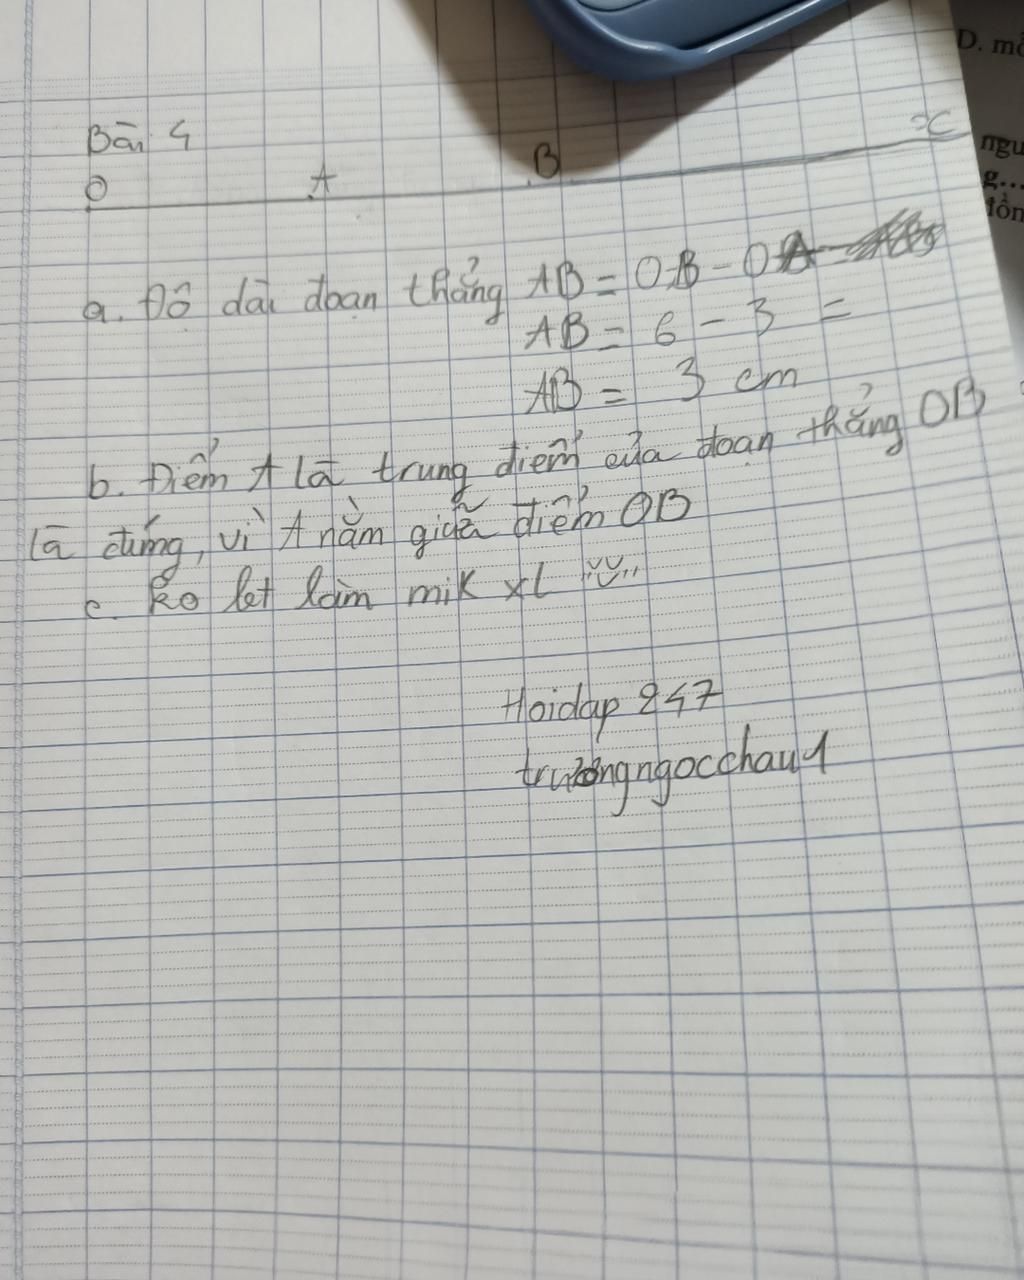 Bài 4
O A B x
a. Độ dài đoạn thẳng AB = OB - OA
AB = 6 - 3 =
AB = 3 cm
b. Điểm A là trung điểm của đoạn thẳng OB
là đúng, vì A nằm giữa điểm OB
c. ko bít làm mik xl
Hoidap 247
truongngocchau1
D. mỗ
ngu
g...